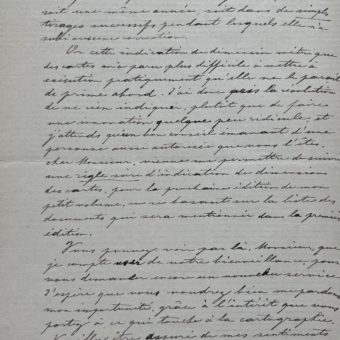 soit une même année, soit dans de simples
tirages successifs pendant lesquels elle n'a
subi aucune correction.
Or cette indication de dimension métrique
des cartes m'a paru plus difficile à mettre à
exécution pratiquement qu'elle ne le paraît
de prime abord. J'ai donc pris la résolution
de ne rien indiquer, plutôt que de faire
une innovation quelque peu ridicule, et
j'attends qu'un bon conseil émanant d'une
personne aussi autorisée que vous l'êtes,
cher Monsieur, vienne me permettre de suivre
une règle sûre d'indication de dimension
des cartes, pour la prochaine édition de mon
petit volume, en se basant sur la liste des
documents qui sera mentionnée dans la première
édition.
Vous pouvez voir par là, Monsieur, que
je compte user de votre bienveillance, pour
vous demander encore un nouveau service.
J'espère que vous voudrez bien me pardonner
mon importunité, grâce à l'intérêt que vous
portez à ce qui touche à la cartographie.
assuré de mes sentiments